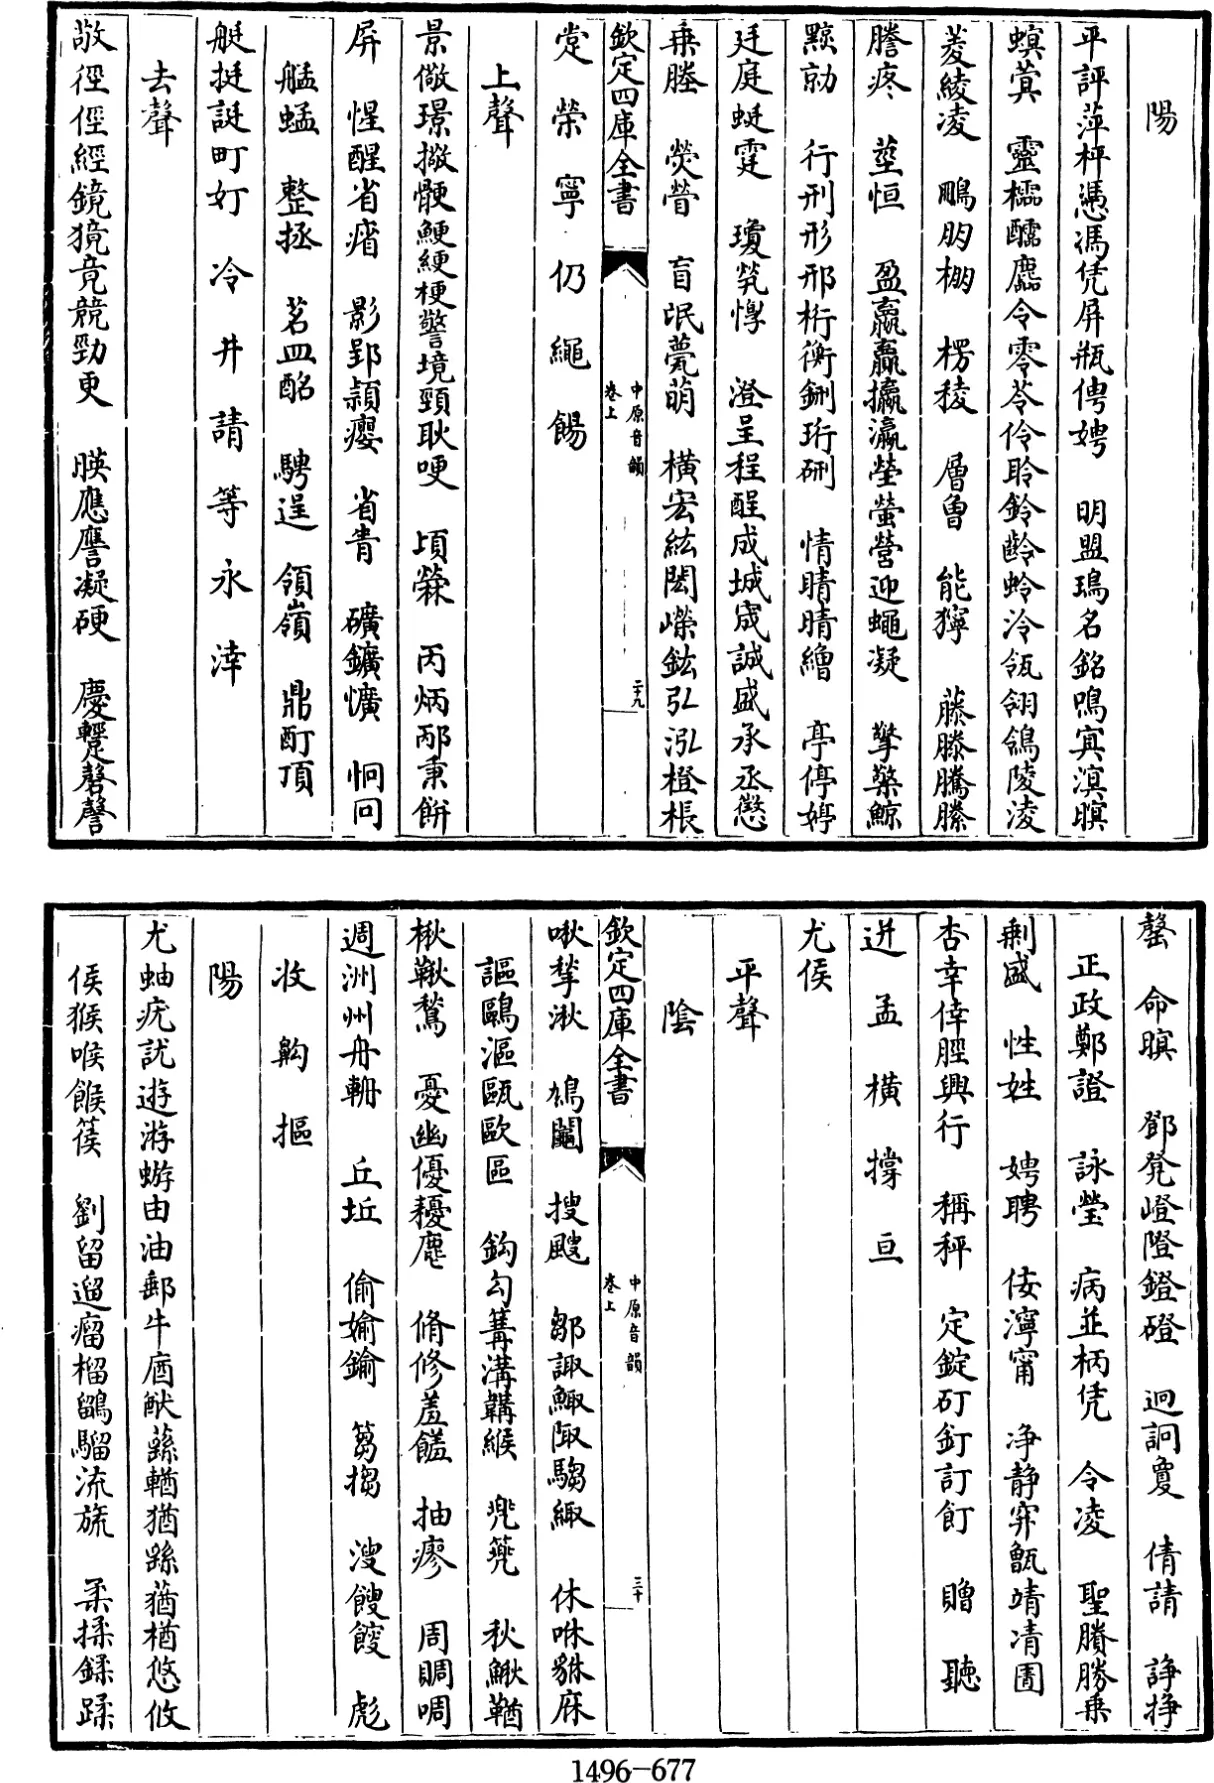 陽
平評萍枰憑馮凭屏瓶俜娉　明盟瑪名銘鳴冥溟暝
螟蓂　靈櫺醽麢令零苓伶聆鈴齡蛉泠瓴翎鴒陵淩
菱綾凌　鵬朋棚　楞稜　層曾　能獰　藤滕騰縢
謄疼　莖恒　盈嬴羸攍瀛瑩螢營迎蠅凝　擎檠鯨
黥勍　行刑形邢桁衡鉶珩硎　情晴睛繒　亭停婷
廷庭蜓霆　瓊煢惸　澄呈程酲成城宬誠盛承丞懲
乗塍　熒𦝡　盲氓甍萌　橫宏紘閎嶸鈜弘泓橙棖
欽定四庫全書　中原音韻　卷上　二十九
棠　榮　寧　仍　繩　餳
上聲
景儆璟撒骾鯁綆梗警境頸耿哽　頃檾　丙炳邴秉餅
屏　惺醒省㾪　影郢潁癭　省眚　礦鑛懭　恫囘
艋蜢　整拯　茗皿酩　騁逞　領嶺　鼎酊頂
艇挺誔町奵　冷　井　請　等　永　涬
去聲
敬徑俓經鏡獍竟競勁更　暎應譍凝硬　慶𨎥磬謦
罄　命暝　鄧凳嶝隥鐙磴　迥詗敻　倩請　諍掙
正政鄭證　詠瑩　病並柄凭　令凌　聖賸勝乗
剰盛　性姓　娉聘　佞濘甯　净静穽甑靖凊圊
杏幸倖脛興行　稱秤　定錠矴釘訂飣　贈　聽
迸　孟　橫　撐　亘
尤侯
平聲
陰
欽定四庫全書　中原音韻　卷上　三十
啾揫湫　鳩鬮　搜颼　鄒諏鯫陬騶緅　休咻貅庥
謳鷗漚甌歐區　鈎勾篝溝韝緱　兜篼　秋鰍鞧
楸鞦鶖　憂幽優耰麀　脩修羞饈　抽瘳　周賙啁
週洲州舟輈　丘坵　偷媮鍮　篘搊　溲餿廋　彪
收　齁　摳
陽
尤蚰疣訧遊游蝣由油郵牛庮猷蕕輶猶繇蕕楢悠攸
侯猴喉餱篌　劉留遛瘤榴鶹騮流旒　柔揉鍒蹂
1496-677